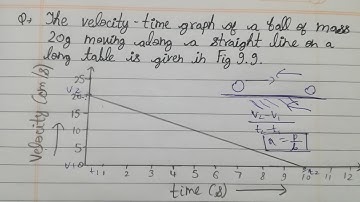 Q. The velocity-time graph of a ball of mass
20g moving along a straight line on a
long table is given in Fig 9.9.
Velocity (cm/s)
25
V2 20
15
10
5
V1 0
t1 1 2 3 4 5 6 7 8 9 10 t2 11 12
time (s)
V2-V1
t2-t1